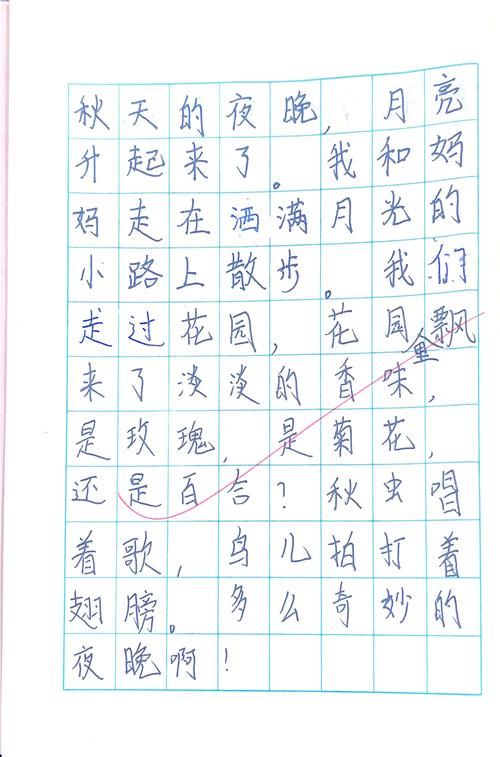 秋天的夜晚,月亮
升起来了。我和妈
妈走在洒满月光的
小路上散步。我们
走过花园,花园里飘
来了淡淡的香味,
是玫瑰,是菊花,
还是百合?秋虫唱
着歌,鸟儿拍打着
翅膀。多么奇妙的
夜晚啊!